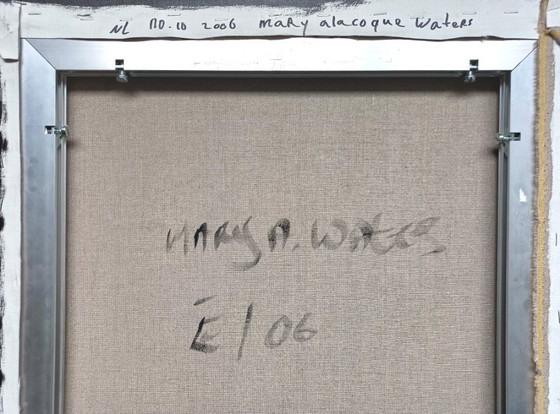 NL no.10 2006 mary alacoque Waters
MARY A. WATERS
E/06